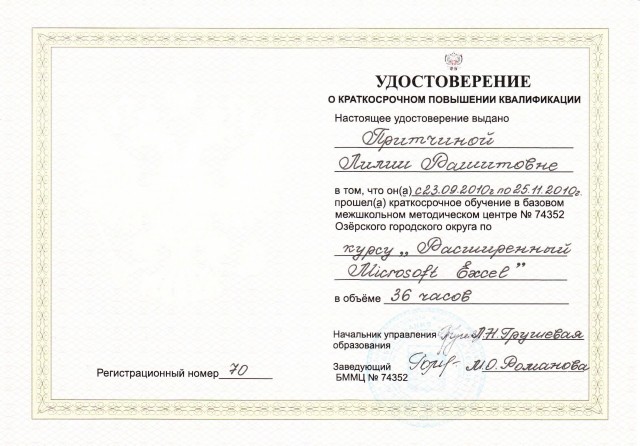 УДОСТОВЕРЕНИЕ
О КРАТКОСРОЧНОМ ПОВЫШЕНИИ КВАЛИФИКАЦИИ
Настоящее удостоверение выдано
Притчиной
Лилии Рашитовне
в том, что он(а) с 23.09.2010г. по 25.11.2010г.
прошел(а) краткосрочное обучение в базовом
межшкольном методическом центре № 74352
Озёрского городского округа по
курсу „Расширенный
Microsoft Excel”
в объёме 36 часов
Начальник управления Л.Н.Грушевая
образования
Заведующий М.О.Романова
БММЦ № 74352
Регистрационный номер 70